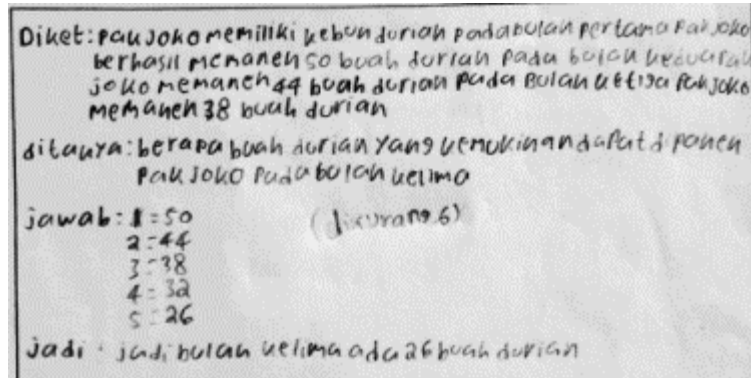 Diket: pak Joko memiliki kebun durian pada bulan pertama Pak Joko
berhasil memanen 50 buah durian pada bulan kedua Pak
joko memanen 44 buah durian pada Bulan ketiga Pak joko
Memanen 38 buah durian
ditanya: berapa buah durian yang kemukinan dapat di panen
Pak Joko pada bulan kelima
jawab: 1 = 50 (dikurang 6)
2 = 44
3 = 38
4 = 32
5 = 26
jadi : jadi bulan kelima ada 26 buah durian